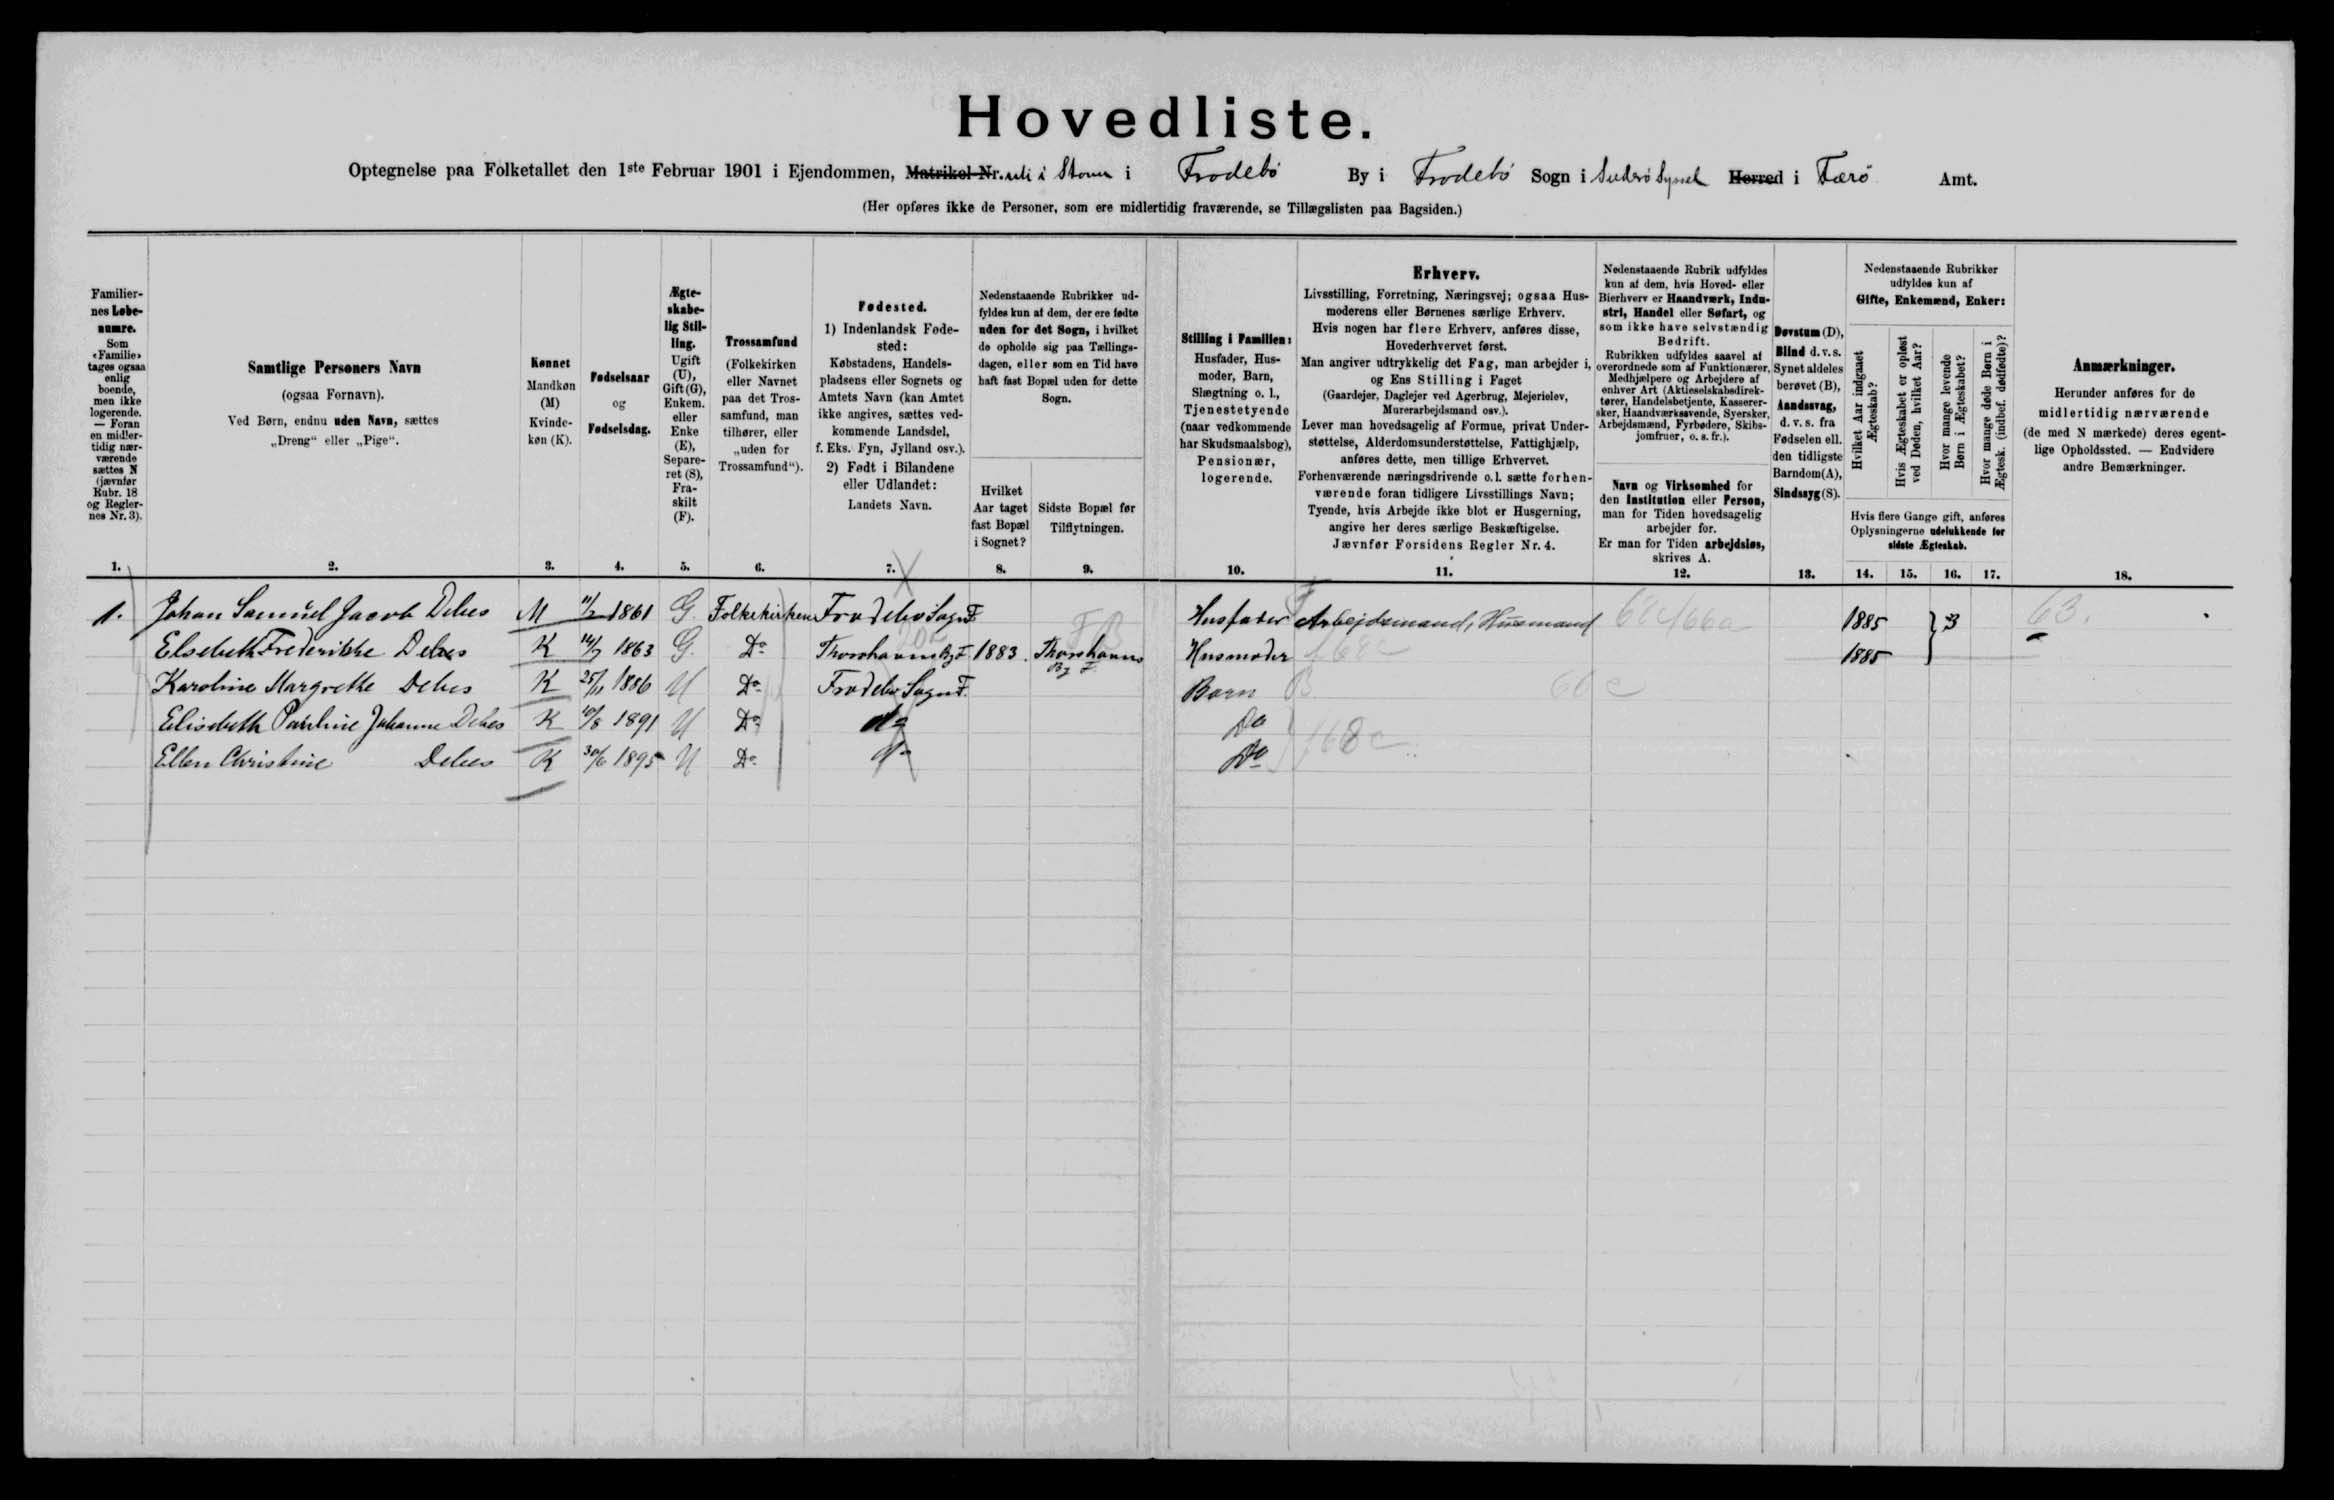 Hovedliste.
Optegnelse paa Folketallet den 1ste Februar 1901 i Ejendommen, Matrikel-Nr. i Frodebö By i Frodebö Sogn i Suderö Syssel Herred i Færö Amt.
(Her opføres ikke de Personer, som ere midlertidig fraværende, se Tillægslisten paa Bagsiden.)
Familier-
nes Løbe-
numre.
Som
«Familie»
tages ogsaa
enlig
boende,
men ikke
logerende.
— Foran
en midler-
tidig nær-
værende
sættes N
(jævnfør
Rubr. 18
og Regler-
nes Nr. 3).
1.
Samtlige Personers Navn
(ogsaa Fornavn).
Ved Børn, endnu uden Navn, sættes
„Dreng“ eller „Pige“.
2.
Kønnet
Mandkøn
(M)
Kvinde-
køn (K).
3.
Fødselsaar
og
Fødselsdag.
4.
Ægte-
skabe-
lig Stil-
ling.
Ugift
(U),
Gift (G),
Enkem.
eller
Enke
(E),
Separe-
ret (S),
Fra-
skilt
(F).
5.
Trossamfund
(Folkekirken
eller Navnet
paa det Tros-
samfund, man
tilhører, eller
„uden for
Trossamfund“).
6.
Fødested.
1) Indenlandsk Føde-
sted:
Købstadens, Handels-
pladsens eller Sognets og
Amtets Navn (kan Amtet
ikke angives, sættes ved-
kommende Landsdel,
f. Eks. Fyn, Jylland osv.).
2) Født i Bilandene
eller Udlandet:
Landets Navn.
7.
Nedenstaaende Rubrikker ud-
fyldes kun af dem, der ere fødte
uden for det Sogn, i hvilket
de opholde sig paa Tællings-
dagen, eller som en Tid have
haft fast Bopæl uden for dette
Sogn.
Hvilket
Aar taget
fast Bopæl
i Sognet?
8.
Sidste Bopæl før
Tilflytningen.
9.
Stilling i Familien:
Husfader, Hus-
moder, Barn,
Slægtning o. l.,
Tjenestetyende
(naar vedkommende
har Skudsmaalsbog),
Pensionær,
logerende.
10.
Erhverv.
Livsstilling, Forretning, Næringsvej; ogsaa Hus-
moderens eller Børnenes særlige Erhverv.
Hvis nogen har flere Erhverv, anføres disse,
Hovederhvervet først.
Man angiver udtrykkelig det Fag, man arbejder i,
og Ens Stilling i Faget
(Gaardejer, Daglejer ved Agerbrug, Mejerielev,
Murerarbejdsmand osv.).
Lever man hovedsagelig af Formue, privat Under-
støttelse, Alderdomsunderstøttelse, Fattighjælp,
anføres dette, men tillige Erhvervet.
Forhenværende næringsdrivende o. l. sætte forhen-
værende foran tidligere Livsstillings Navn;
Tyende, hvis Arbejde ikke blot er Husgerning,
angive her deres særlige Beskæftigelse.
Jævnfør Forsidens Regler Nr. 4.
11.
Nedenstaaende Rubrik udfyldes
kun af dem, hvis Hoved- eller
Bierhverv er Haandværk, Indu-
stri, Handel eller Søfart, og
som ikke have selvstændig
Bedrift.
Rubrikken udfyldes saavel af
overordnede som af Funktionærer,
Medhjælpere og Arbejdere af
enhver Art (Aktieselskabsdirek-
tører, Handelsbetjente, Kasserer-
sker, Haandværkssvende, Syersker,
Arbejdsmænd, Fyrbødere, Skibs-
jomfruer, o. s. fr.).
Navn og Virksomhed for
den Institution eller Person,
man for Tiden hovedsagelig
arbejder for.
Er man for Tiden arbejdsløs,
skrives A.
12.
Døvstum (D),
Blind d. v. s.
Synet aldeles
berøvet (B),
Aandssvag,
d. v. s. fra
Fødselen ell.
den tidligste
Barndom (A),
Sindssyg (S).
13.
Nedenstaaende Rubrikker
udfyldes kun af
Gifte, Enkemænd, Enker:
Hvilket Aar indgaaet
Ægteskab?
Hvis Ægteskabet er opløst
ved Døden, hvilket Aar?
Hvor mange levende
Børn i Ægteskabet?
Hvor mange døde Børn i
Ægtesk. (indbef. dødfødte)?
Hvis flere Gange gift, anføres
Oplysningerne udelukkende for
sidste Ægteskab.
14. 15. 16. 17.
Anmærkninger.
Herunder anføres for de
midlertidig nærværende
(de med N mærkede) deres egent-
lige Opholdssted. — Endvidere
andre Bemærkninger.
18.
1. Johan Samuel Jacob Debes M 11/2 1861 G. Folkekirken Frodebö Sogn F. Husfader Arbejdsmand, Husmand 68c/66a 1885 3 63.
Elsebeth Frederikke Debes K 14/7 1863 G. Do Thorshavns By F. 1883. Thorshavns By F. Husmoder 1885
Karoline Margrethe Debes K 25/11 1886 U Do Frodebö Sogn F. Barn B
Elisabeth Pauline Johanne Debes K 10/8 1891 U Do do Do
Ellen Christine Debes K 30/6 1895 U Do do Do 168c